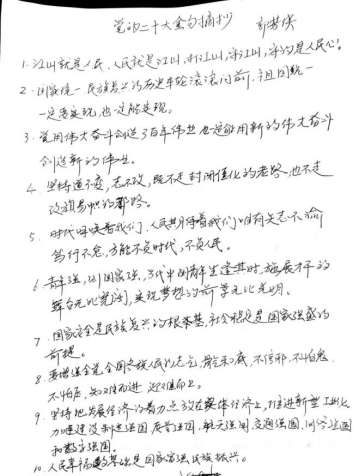 党的二十大金句摘抄
1. 江山就是人民、人民就是江山,打江山,守江山,守的是人民心。
2. 国家统一、民族复兴的历史车轮滚滚向前,祖国统一
一定要实现,也一定能实现。
3. 党用伟大奋斗创造了百年伟业也一定能用新的伟大奋斗
创造新的伟业。
4. 坚持道不变,志不改,既不走封闭僵化的老路,也不走
改旗易帜的邪路。
5. 时代呼唤着我们、人民期待着我们唯有矢志不渝
笃行不怠,方能不负时代,不负人民。
6. 青年强,则国家强,当代中国青年生逢其时,施展才干的
舞台无比宽阔,实现梦想的前景无比光明。
7. 国家安全是民族复兴的根本基,社会稳定是国家强盛的
前提。
8. 要增强全党全国各族人民的志气、骨气和底,不信邪、不怕鬼
不怕压,知难而进,迎难而上。
9. 坚持把发展经济的着力点放在实体经济上,推进新型工业化
加快建设制造强国质量强国,航天强国,交通强国,网络强国
和数字强国。
10. 人民幸福的基础是国家富强民族振兴。